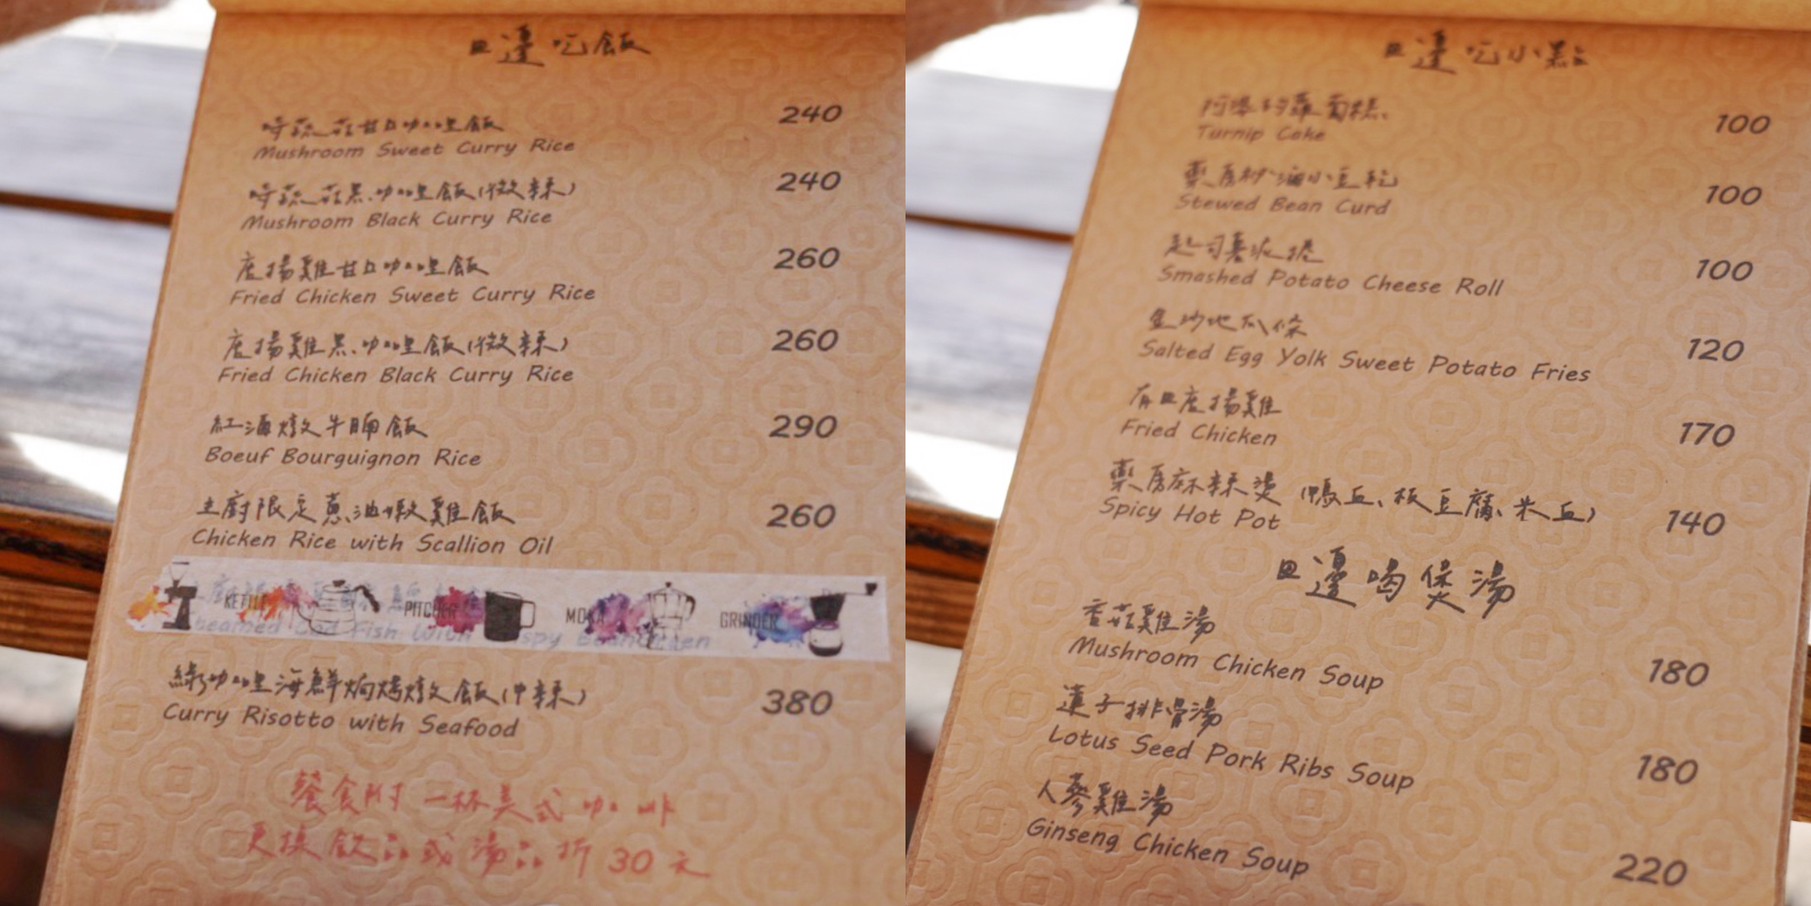 旦邊吃飯
時蔬菇甘口咖哩飯 240
Mushroom Sweet Curry Rice
時蔬菇黑咖哩飯(微辣) 240
Mushroom Black Curry Rice
唐揚雞甘口咖哩飯 260
Fried Chicken Sweet Curry Rice
唐揚雞黑咖哩飯(微辣) 260
Fried Chicken Black Curry Rice
紅酒燉牛腩飯 290
Boeuf Bourguignon Rice
主廚限定蔥油嫩雞飯 260
Chicken Rice with Scallion Oil
KETTLE PITCHER MOKA GRINDER
綠咖哩海鮮焗烤燉飯(中辣) 380
Curry Risotto with Seafood
餐食附一杯美式咖啡
更換飲品或湯品折30元
旦邊吃小點
阿婆的蘿蔔糕 100
Turnip Cake
藥房紗滷小豆乾 100
Stewed Bean Curd
起司薯泥捲 100
Smashed Potato Cheese Roll
金沙地瓜條 120
Salted Egg Yolk Sweet Potato Fries
有旦唐揚雞 170
Fried Chicken
藥房麻辣燙(鴨血、板豆腐、米血) 140
Spicy Hot Pot
旦邊喝煲湯
香菇雞湯 180
Mushroom Chicken Soup
蓮子排骨湯 180
Lotus Seed Pork Ribs Soup
人蔘雞湯 220
Ginseng Chicken Soup